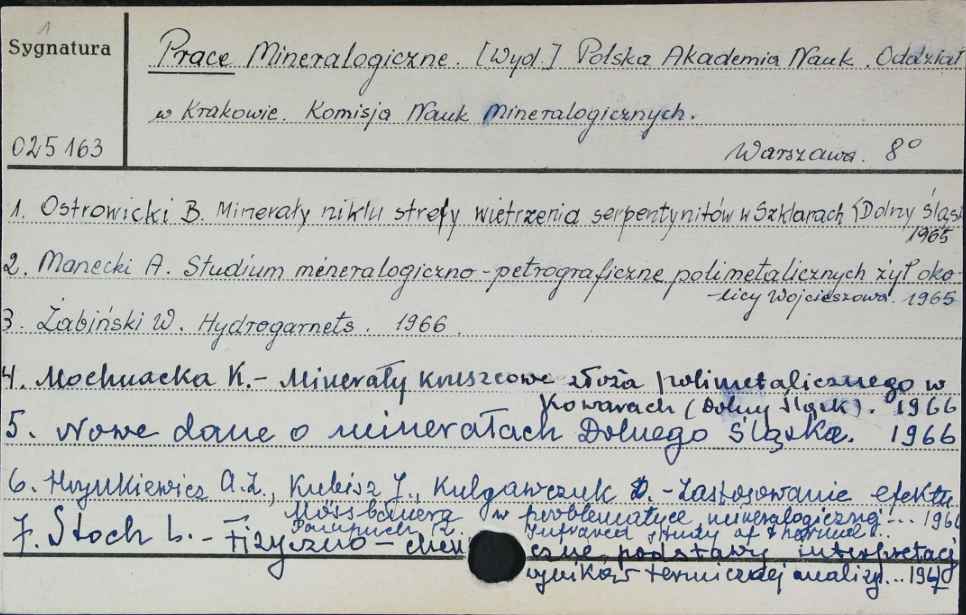 1
Sygnatura
Prace Mineralogiczne. [Wyd.] Polska Akademia Nauk. Oddział
w Krakowie. Komisja Nauk Mineralogicznych.
025163
Warszawa. 8°
1. Ostrowicki B. Minerały niklu strefy wietrzenia serpentynitów w Szklarach (Dolny Śląs
1965
2. Manecki A. Studium mineralogiczno-petrograficzne polimetalicznych żył oko-
-licy Wojcieszowa. 1965
3. Żabiński W. Hydrogarnets. 1966.
4. Mochnacka K. - Minerały kruszcowe złoża polimetalicznego w
Kowarach (Dolny Śląsk). 1966
5. Nowe dane o minerałach Dolnego Śląska. 1966
6. Hrynkiewicz A.Z., Kubisz J., Kulgawczuk D. - Zastosowanie efektu
Mössbauera w problematyce mineralogicznej... 1966
Infrared study of thermal..
7. Stoch L. - Fizyczno-chemiczne podstawy interpretacji
wyników termicznej analizy... 1967